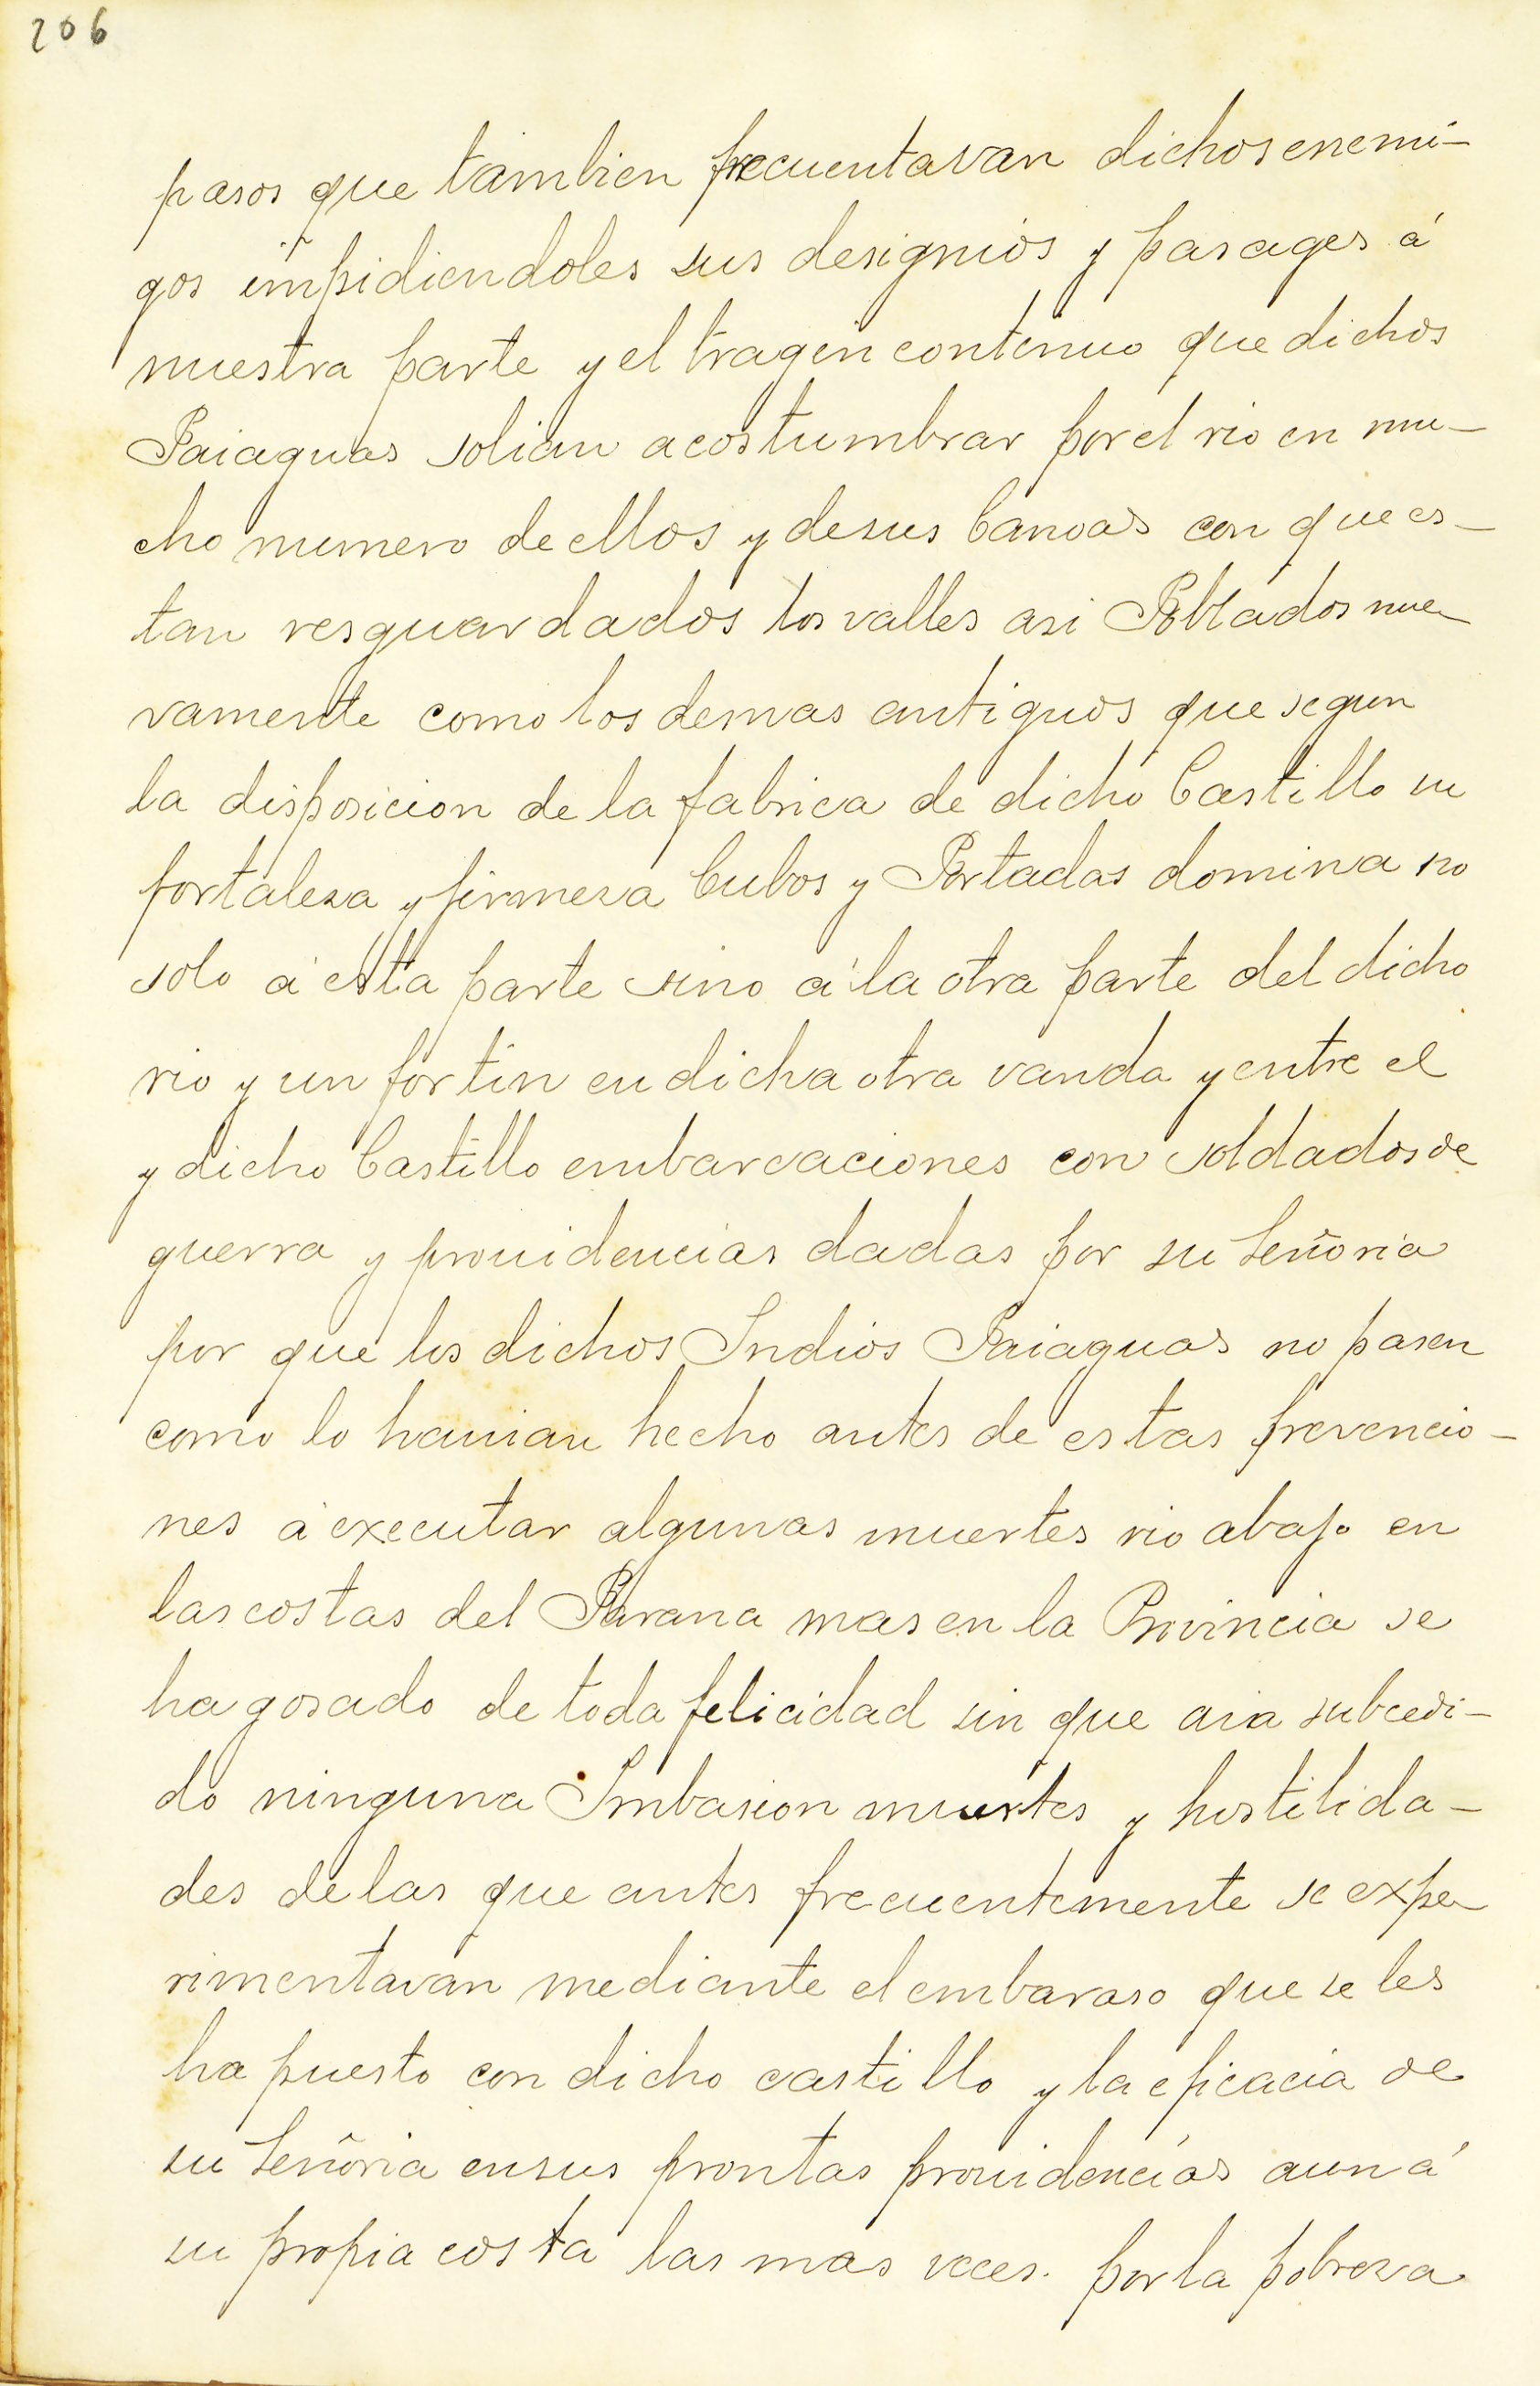 206
pasos que tambien frecuentavan dichos enemi-
gos impidiendoles sus designios y pasages á
nuestra parte y el tragin continuo que dichos
Paiaguas solian acostumbrar por el rio en mu-
cho numero de ellos y de sus Canoas con que es-
tan resguardados los valles asi Poblados nue-
vamente como los demas antiguos que segun
la disposicion de la fabrica de dicho Castillo su
fortalesa y firmesa Cubos y Portadas domina no
solo á esta parte sino á la otra parte del dicho
rio y un fortin en dicha otra vanda y entre el
y dicho Castillo embarcaciones con soldados de
guerra y prouidencias dadas por su Señoria
por que los dichos Indios Paiaguas no pasen
como lo hauian hecho antes de estas prevencio-
nes á executar algunas muertes rio abajo en
las costas del Parana mas en la Provincia se
ha gosado de toda felicidad sin que aia subcedi-
do ninguna Imbasion muertes y hostilida-
des de las que antes frecuentemente se expe-
rimentavan mediante el embaraso que se les
ha puesto con dicho castillo y la eficacia de
su Señoria en sus prontas prouidencias aun á
su propia costa las mas veces. por la pobresa